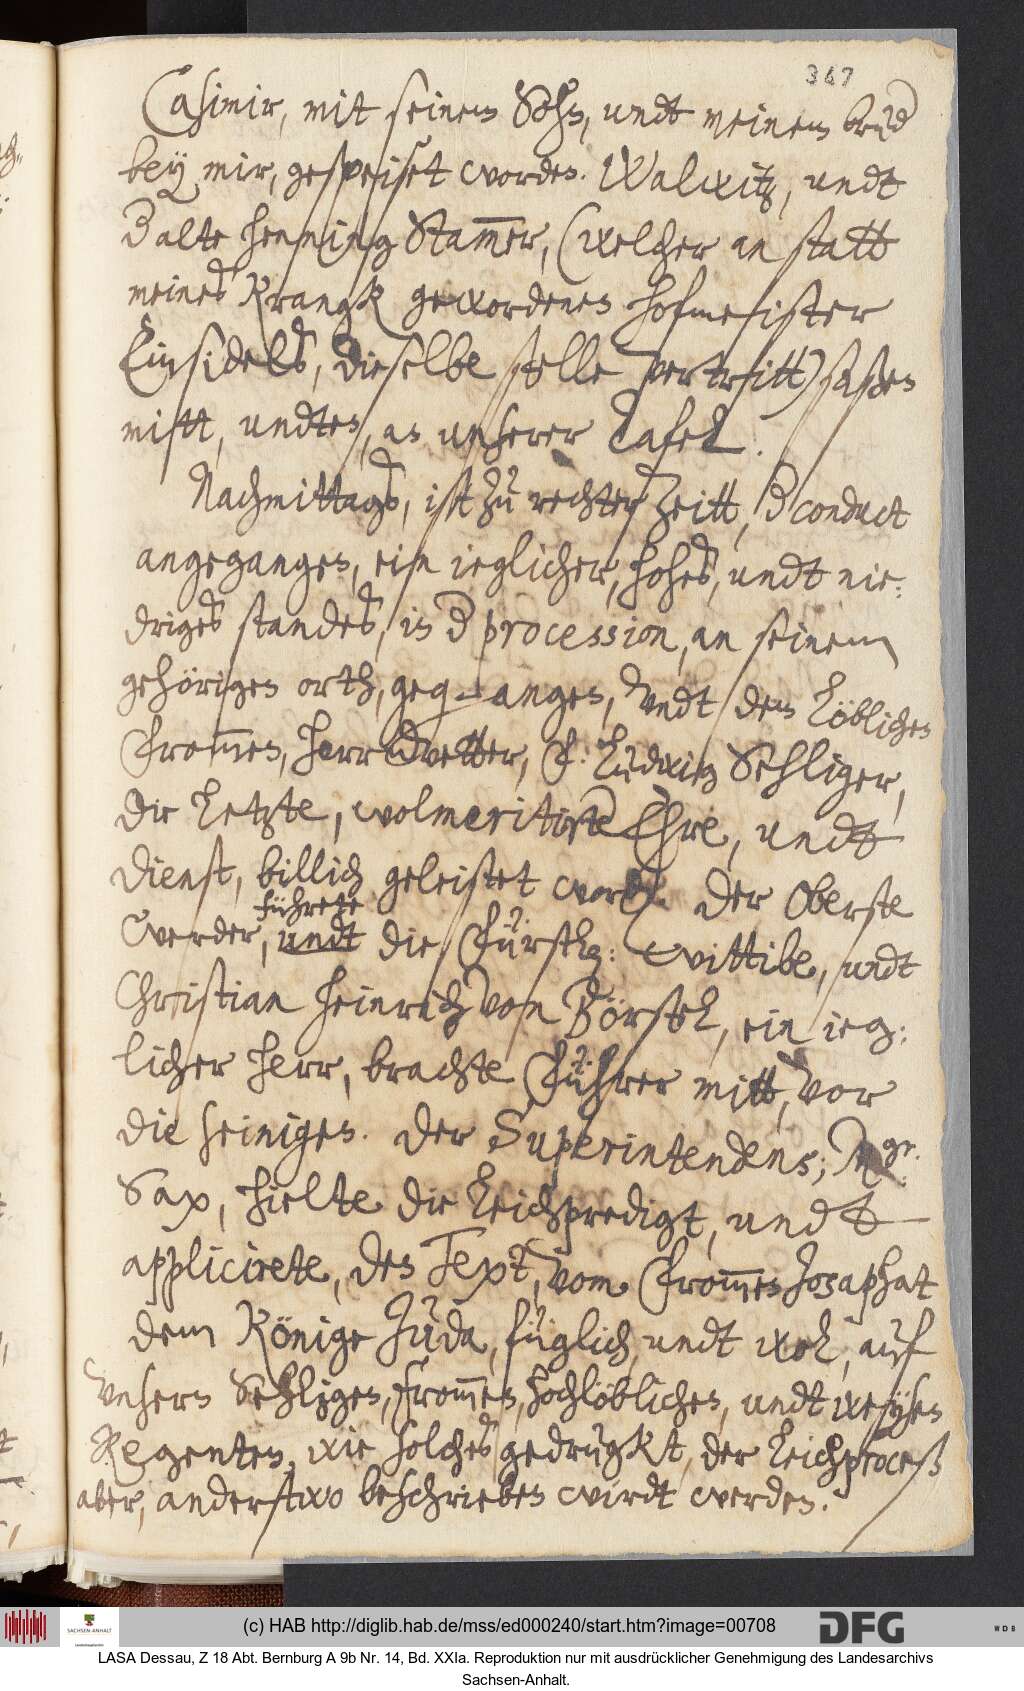 367
Casimir, mit seinem Sohn, undt meinem brud
bey mir, gespeiset worden. Walwitz, undt
D alte Henning Stam̅er, (welcher an statt
meines Krangk gewordenen Hofmeister
Einsidels, dieselbe stelle vertritt) saßen
mitt, undten, an unserer Tafel.
Nachmittags, ist zu rechter Zeitt, D conduct
angegangen, ein ieglicher, hohes, undt nie:
driges standes, in D procession, an seinem
gehörigen orth, geg- angen, Vndt dem Löblichen
From̅en, Herr Vetter, F: Ludwig Sehliger,
die Letzte, wolmeritirte Ehre, undt
dienst, billich geleistet word. Der Oberste
führete
Werder, undt die Fürstl: Wittibe, undt
Christian Heinrich von Börstel, ein ieg:
licher Herr, brachte Führer mitt, vor
die seinigen. Der Superintendens; Mgr.
Sax, hielte die Leichpredigt, undt
applicirete, den Text, vom From̅en Josaphat
dem Könige Juda, füglich, undt wol, auf
Vnsern Sehligen, From̅en, Hochlöblichen, undt weysen
Regenten, wie solches gedrugkt, der Leichproceß
aber, anderstwo beschrieben wirdt werden.
(c) HAB http://diglib.hab.de/mss/ed000240/start.htm?image=00708
SACHSEN-ANHALT
DFG
WDB
LASA Dessau, Z 18 Abt. Bernburg A 9b Nr. 14, Bd. XXIa. Reproduktion nur mit ausdrücklicher Genehmigung des Landesarchivs
Sachsen-Anhalt.